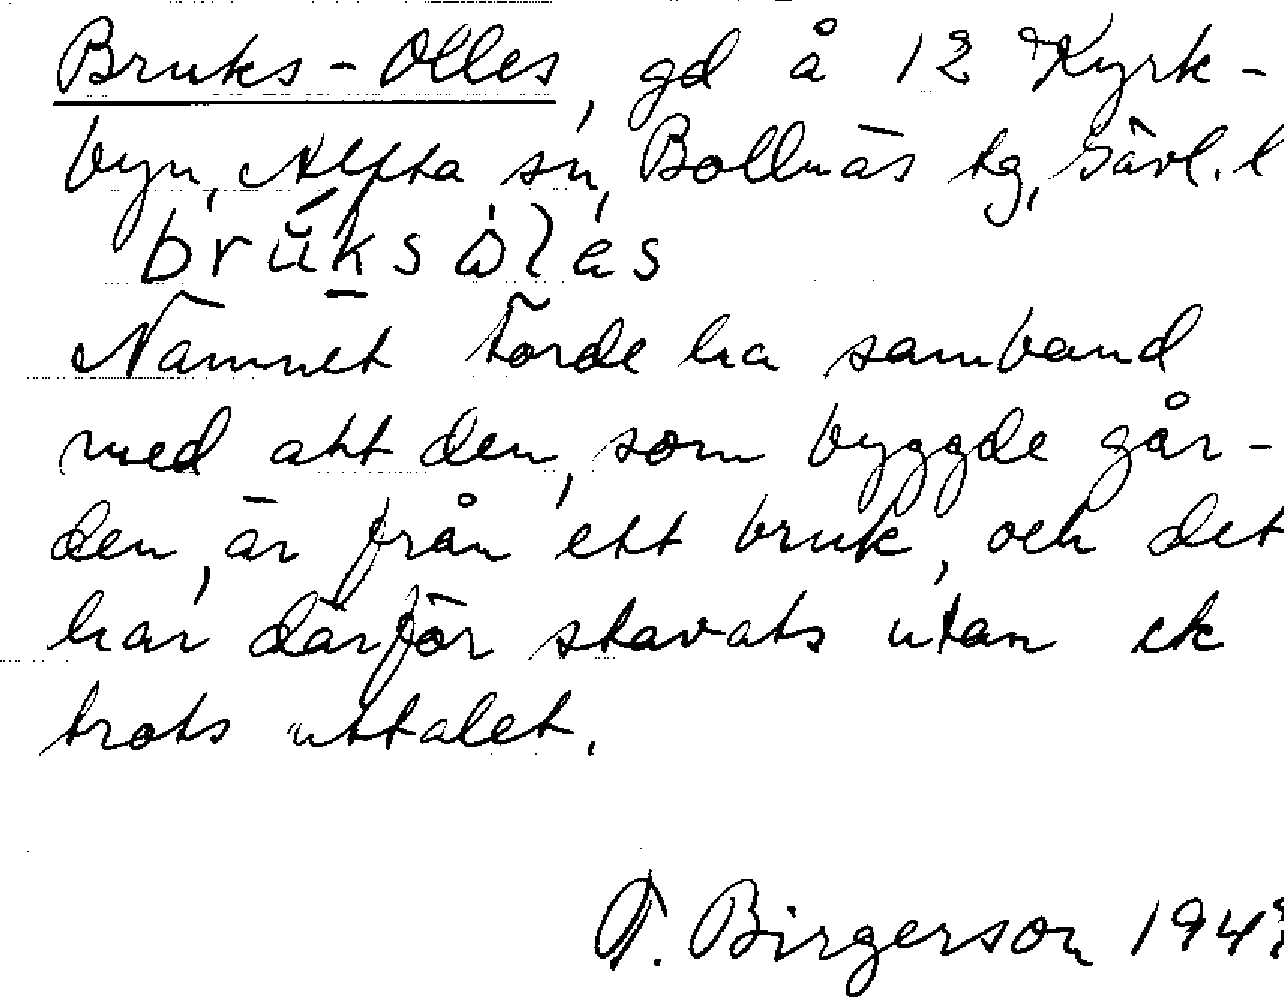 Bruks-Olles, gd å 12 Kyrk-
byn, Alfta sn, Bollnäs tg, Gävl. l
Namnet torde ha samband
med att den, som byggde går-
den, är från ett bruk, och det
har därför stavats utan ck
trots uttalet.
T. Birgerson